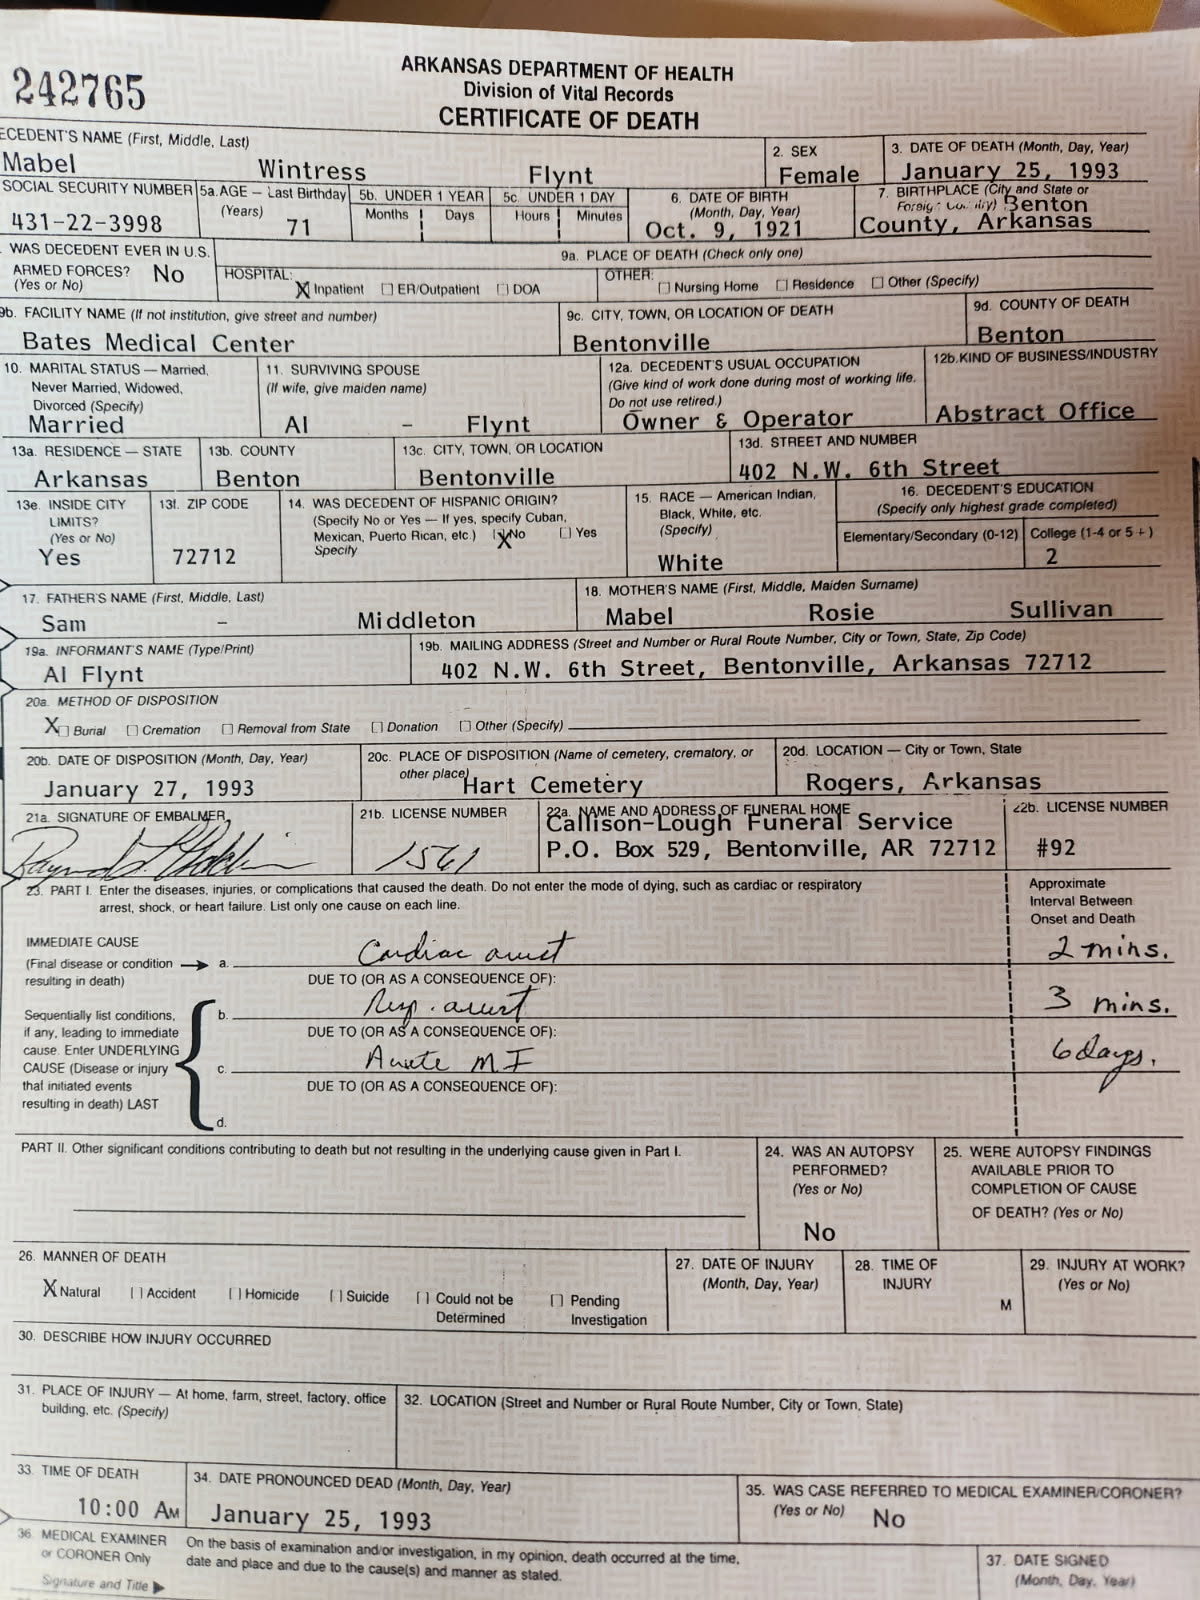 242765
ARKANSAS DEPARTMENT OF HEALTH
Division of Vital Records
CERTIFICATE OF DEATH
ECEDENT'S NAME (First, Middle, Last)
Mabel Wintress Flynt
2. SEX
Female
3. DATE OF DEATH (Month, Day, Year)
January 25, 1993
SOCIAL SECURITY NUMBER
431-22-3998
5a. AGE — Last Birthday
(Years)
71
5b. UNDER 1 YEAR
Months Days
5c. UNDER 1 DAY
Hours Minutes
6. DATE OF BIRTH
(Month, Day, Year)
Oct. 9, 1921
7. BIRTHPLACE (City and State or
Benton
County, Arkansas
WAS DECEDENT EVER IN U.S.
ARMED FORCES?
(Yes or No)
No
9a. PLACE OF DEATH (Check only one)
HOSPITAL:
X Inpatient ER/Outpatient DOA
OTHER:
Nursing Home Residence Other (Specify)
9b. FACILITY NAME (If not institution, give street and number)
Bates Medical Center
9c. CITY, TOWN, OR LOCATION OF DEATH
Bentonville
9d. COUNTY OF DEATH
Benton
10. MARITAL STATUS — Married,
Never Married, Widowed,
Divorced (Specify)
Married
11. SURVIVING SPOUSE
(If wife, give maiden name)
Al - Flynt
12a. DECEDENT'S USUAL OCCUPATION
(Give kind of work done during most of working life.
Do not use retired.)
Owner & Operator
12b. KIND OF BUSINESS/INDUSTRY
Abstract Office
13a. RESIDENCE — STATE
Arkansas
13b. COUNTY
Benton
13c. CITY, TOWN, OR LOCATION
Bentonville
13d. STREET AND NUMBER
402 N.W. 6th Street
13e. INSIDE CITY
LIMITS?
(Yes or No)
Yes
13f. ZIP CODE
72712
14. WAS DECEDENT OF HISPANIC ORIGIN?
(Specify No or Yes — If yes, specify Cuban,
Mexican, Puerto Rican, etc.) X No Yes
Specify
15. RACE — American Indian,
Black, White, etc.
(Specify)
White
16. DECEDENT'S EDUCATION
(Specify only highest grade completed)
Elementary/Secondary (0-12)
College (1-4 or 5 + )
2
17. FATHER'S NAME (First, Middle, Last)
Sam - Middleton
18. MOTHER'S NAME (First, Middle, Maiden Surname)
Mabel Rosie Sullivan
19a. INFORMANT'S NAME (Type/Print)
Al Flynt
19b. MAILING ADDRESS (Street and Number or Rural Route Number, City or Town, State, Zip Code)
402 N.W. 6th Street, Bentonville, Arkansas 72712
20a. METHOD OF DISPOSITION
X Burial Cremation Removal from State Donation Other (Specify)
20b. DATE OF DISPOSITION (Month, Day, Year)
January 27, 1993
20c. PLACE OF DISPOSITION (Name of cemetery, crematory, or
other place)
Hart Cemetery
20d. LOCATION — City or Town, State
Rogers, Arkansas
21a. SIGNATURE OF EMBALMER
21b. LICENSE NUMBER
1561
22a. NAME AND ADDRESS OF FUNERAL HOME
Callison-Lough Funeral Service
P.O. Box 529, Bentonville, AR 72712
22b. LICENSE NUMBER
#92
23. PART I. Enter the diseases, injuries, or complications that caused the death. Do not enter the mode of dying, such as cardiac or respiratory
arrest, shock, or heart failure. List only one cause on each line.
Approximate
Interval Between
Onset and Death
IMMEDIATE CAUSE
(Final disease or condition
resulting in death)
a. Cardiac arrest 2 mins.
DUE TO (OR AS A CONSEQUENCE OF):
Sequentially list conditions,
if any, leading to immediate
cause. Enter UNDERLYING
CAUSE (Disease or injury
that initiated events
resulting in death) LAST
b. Resp. arrest 3 mins.
DUE TO (OR AS A CONSEQUENCE OF):
c. Acute MI 6 days.
DUE TO (OR AS A CONSEQUENCE OF):
d.
PART II. Other significant conditions contributing to death but not resulting in the underlying cause given in Part I.
24. WAS AN AUTOPSY
PERFORMED?
(Yes or No)
No
25. WERE AUTOPSY FINDINGS
AVAILABLE PRIOR TO
COMPLETION OF CAUSE
OF DEATH? (Yes or No)
26. MANNER OF DEATH
X Natural Accident Homicide Suicide Could not be
Determined
Pending
Investigation
27. DATE OF INJURY
(Month, Day, Year)
28. TIME OF
INJURY
M
29. INJURY AT WORK?
(Yes or No)
30. DESCRIBE HOW INJURY OCCURRED
31. PLACE OF INJURY — At home, farm, street, factory, office
building, etc. (Specify)
32. LOCATION (Street and Number or Rural Route Number, City or Town, State)
33. TIME OF DEATH
10:00 AM
34. DATE PRONOUNCED DEAD (Month, Day, Year)
January 25, 1993
35. WAS CASE REFERRED TO MEDICAL EXAMINER/CORONER?
(Yes or No)
No
36. MEDICAL EXAMINER
or CORONER Only
Signature and Title
On the basis of examination and/or investigation, in my opinion, death occurred at the time,
date and place and due to the cause(s) and manner as stated.
37. DATE SIGNED
(Month, Day, Year)